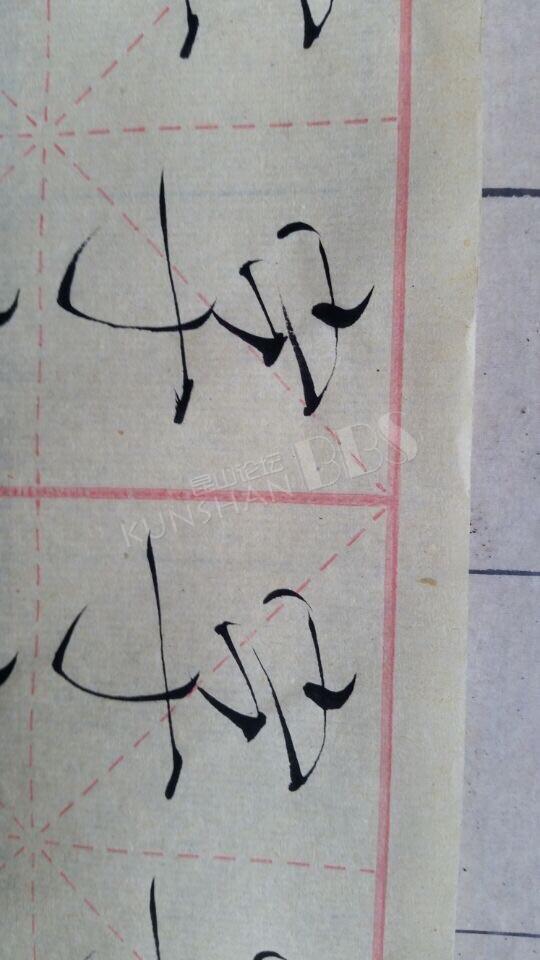 字字
昆山论坛
KUNSHAN BBS